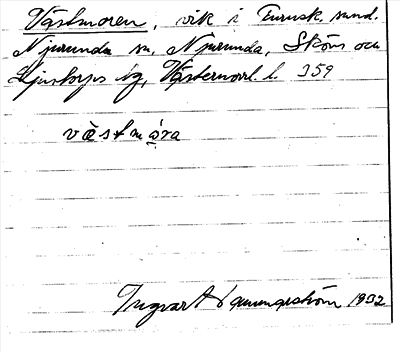 Västmoren, vik i Furusk. sund.
Njurunda sn, Njurunda, Sköns och
Ljustorps tg, Västernorrl. l. 359
västmɷra
Ingvar 1932